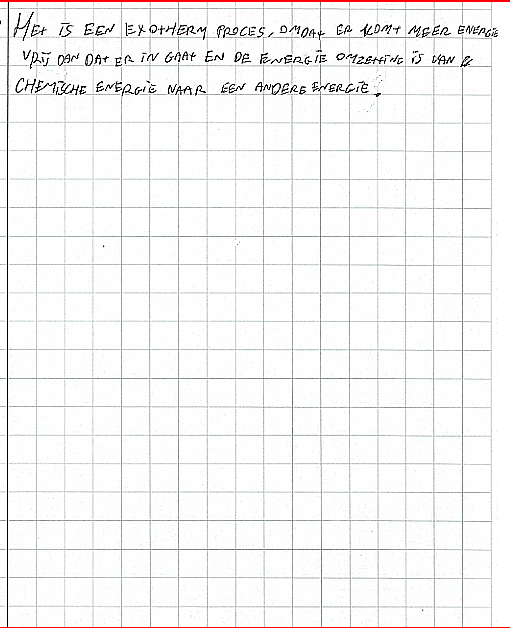 HET IS EEN EXOTHERM PROCES, OMDAT ER KOMT MEER ENERGIE
VRIJ DAN DAT ER IN GAAT EN DE ENERGIE OMZETTING IS VAN
CHEMISCHE ENERGIE NAAR EEN ANDERE ENERGIE.